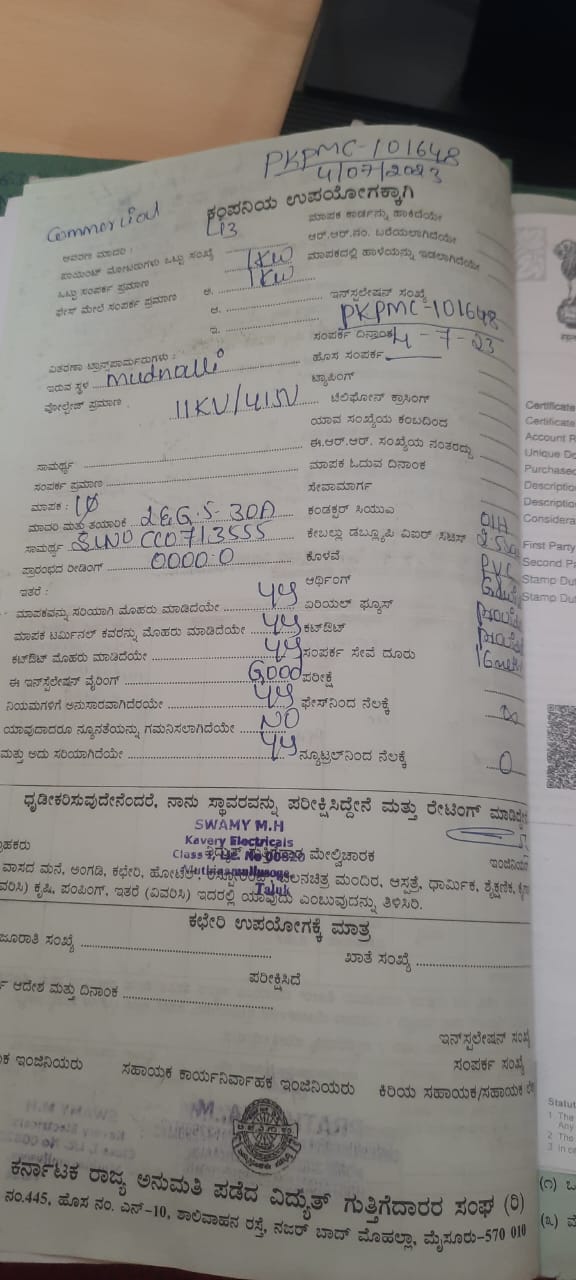 PKPMC-101648
4/07/2023
ಕಂಪನಿಯ ಉಪಯೋಗಕ್ಕಾಗಿ
Commercial
L3
ಮಾಪಕ ಕಾರ್ಡನ್ನು ಹಾಕಿದೆಯೇ
ಆವರಣ ಮಾದರಿ :
ಆರ್.ಆರ್.ನಂ. ಬರೆಯಲಾಗಿದೆಯೇ
ಪಾಯಿಂಟ್ ಮೋಟರುಗಳು ಒಟ್ಟು ಸಂಖ್ಯೆ
ಮಾಪಕದಲ್ಲಿ ಹಾಳೆಯನ್ನು ಇಡಲಾಗಿದೆಯೇ
ಒಟ್ಟು ಸಂಪರ್ಕ ಪ್ರಮಾಣ 1KW
ಫೇಸ್ ಮೇಲೆ ಸಂಪರ್ಕ ಪ್ರಮಾಣ ಅ. 1KW
ಆ.
ಇನ್‌ಸ್ಟಲೇಷನ್ ಸಂಖ್ಯೆ
PKPMC-101648
ಇ.
ಸಂಪರ್ಕ ದಿನಾಂಕ 4-7-23
ವಿತರಣಾ ಟ್ರಾನ್ಸ್‌ಫಾರ್ಮರುಗಳು :
ಹೊಸ ಸಂಪರ್ಕ
ಇರುವ ಸ್ಥಳ Mudnalli
ಟ್ಯಾಪಿಂಗ್
ವೋಲ್ಟೇಜ್ ಪ್ರಮಾಣ 11KV/415V
ಟೆಲಿಫೋನ್ ಕ್ರಾಸಿಂಗ್
ಯಾವ ಸಂಖ್ಯೆಯ ಕಂಬದಿಂದ
ಈ.ಆರ್.ಆರ್. ಸಂಖ್ಯೆಯ ನಂತರದ್ದು
ಸಾಮರ್ಥ್ಯ
ಮಾಪಕ ಓದುವ ದಿನಾಂಕ
ಸಂಪರ್ಕ ಪ್ರಮಾಣ
ಸೇವಾಮಾರ್ಗ
ಮಾಪಕ : 1Ø
ಕಂಡಕ್ಟರ್ ಸಿಯುಎ OH
ಮಾದರಿ ಮತ್ತು ತಯಾರಿಕೆ L&G 5-30A
ಕೇಬಲ್ಲು ಡಬ್ಲ್ಯೂಪಿ ವಿಐರ್
ಸಾಮರ್ಥ್ಯ SLNO CC0713555
ಕೊಳವೆ PVC
ಪ್ರಾರಂಭದ ರೀಡಿಂಗ್ 0000.0
ಆರ್ಥಿಂಗ್
ಇತರೆ :
ಏರಿಯಲ್ ಫ್ಯೂಸ್
ಮಾಪಕವನ್ನು ಸರಿಯಾಗಿ ಮೊಹರು ಮಾಡಿದೆಯೇ
ಕಟ್‌ಔಟ್
ಮಾಪಕ ಟರ್ಮಿನಲ್ ಕವರನ್ನು ಮೊಹರು ಮಾಡಿದೆಯೇ
ಸಂಪರ್ಕ ಸೇವೆ ದೂರು
ಕಟ್‌ಔಟ್ ಮೊಹರು ಮಾಡಿದೆಯೇ
ಈ ಇನ್‌ಸ್ಟಲೇಷನ್ ವೈರಿಂಗ್ Good
ಪರೀಕ್ಷೆ
ನಿಯಮಗಳಿಗೆ ಅನುಸಾರವಾಗಿದೆರಯೇ
ಫೇಸ್‌ನಿಂದ ನೆಲಕ್ಕೆ ∞
ಯಾವುದಾದರೂ ನ್ಯೂನತೆಯನ್ನು ಗಮನಿಸಲಾಗಿದೆಯೇ NO
ಮತ್ತು ಅದು ಸರಿಯಾಗಿದೆಯೇ
ನ್ಯೂಟ್ರಲ್‌ನಿಂದ ನೆಲಕ್ಕೆ 0
ಧೃಡೀಕರಿಸುವುದೇನೆಂದರೆ, ನಾನು ಸ್ಥಾವರವನ್ನು ಪರೀಕ್ಷಿಸಿದ್ದೇನೆ ಮತ್ತು ರೇಟಿಂಗ್
SWAMY M.H
Kavery Electricals
ಮೇಲ್ವಿಚಾರಕ
Taluk
ವಾಸದ ಮನೆ, ಅಂಗಡಿ, ಕಛೇರಿ, ಚಲನಚಿತ್ರ ಮಂದಿರ, ಆಸ್ಪತ್ರೆ, ಧಾರ್ಮಿಕ, ಶೈಕ್ಷಣಿಕ,
ಕೃಷಿ, ಪಂಪಿಂಗ್, ಇತರೆ (ವಿವರಿಸಿ) ಇದರಲ್ಲಿ ಯಾವುದು ಎಂಬುವುದನ್ನು ತಿಳಿಸಿರಿ.
ಕಛೇರಿ ಉಪಯೋಗಕ್ಕೆ ಮಾತ್ರ
ಸಂಖ್ಯೆ
ಖಾತೆ ಸಂಖ್ಯೆ
ಪರೀಕ್ಷಿಸಿದೆ
ಆದೇಶ ಮತ್ತು ದಿನಾಂಕ
ಇನ್‌ಸ್ಟಲೇಷನ್
ಸಂಪರ್ಕ ಸಂಖ್ಯೆ
ಇಂಜಿನಿಯರು ಸಹಾಯಕ ಕಾರ್ಯನಿರ್ವಾಹಕ ಇಂಜಿನಿಯರು ಕಿರಿಯ ಸಹಾಯಕ/ಸಹಾಯಕ
ಕರ್ನಾಟಕ ರಾಜ್ಯ ಅನುಮತಿ ಪಡೆದ ವಿದ್ಯುತ್ ಗುತ್ತಿಗೆದಾರರ ಸಂಘ (ರಿ)
ನಂ.445, ಹೊಸ ನಂ. ಎನ್-10, ಶಾಲಿವಾಹನ ರಸ್ತೆ, ನಜರ್ ಬಾದ್ ಮೊಹಲ್ಲಾ, ಮೈಸೂರು-570 010
Certificate
Certificate
Account R
Unique Do
Purchased
Description
Description
Considera
First Party
Second P
Stamp Du
Stamp Dut
Statut
1 The
Any
2 The
3 In c
(೧)
(೩)